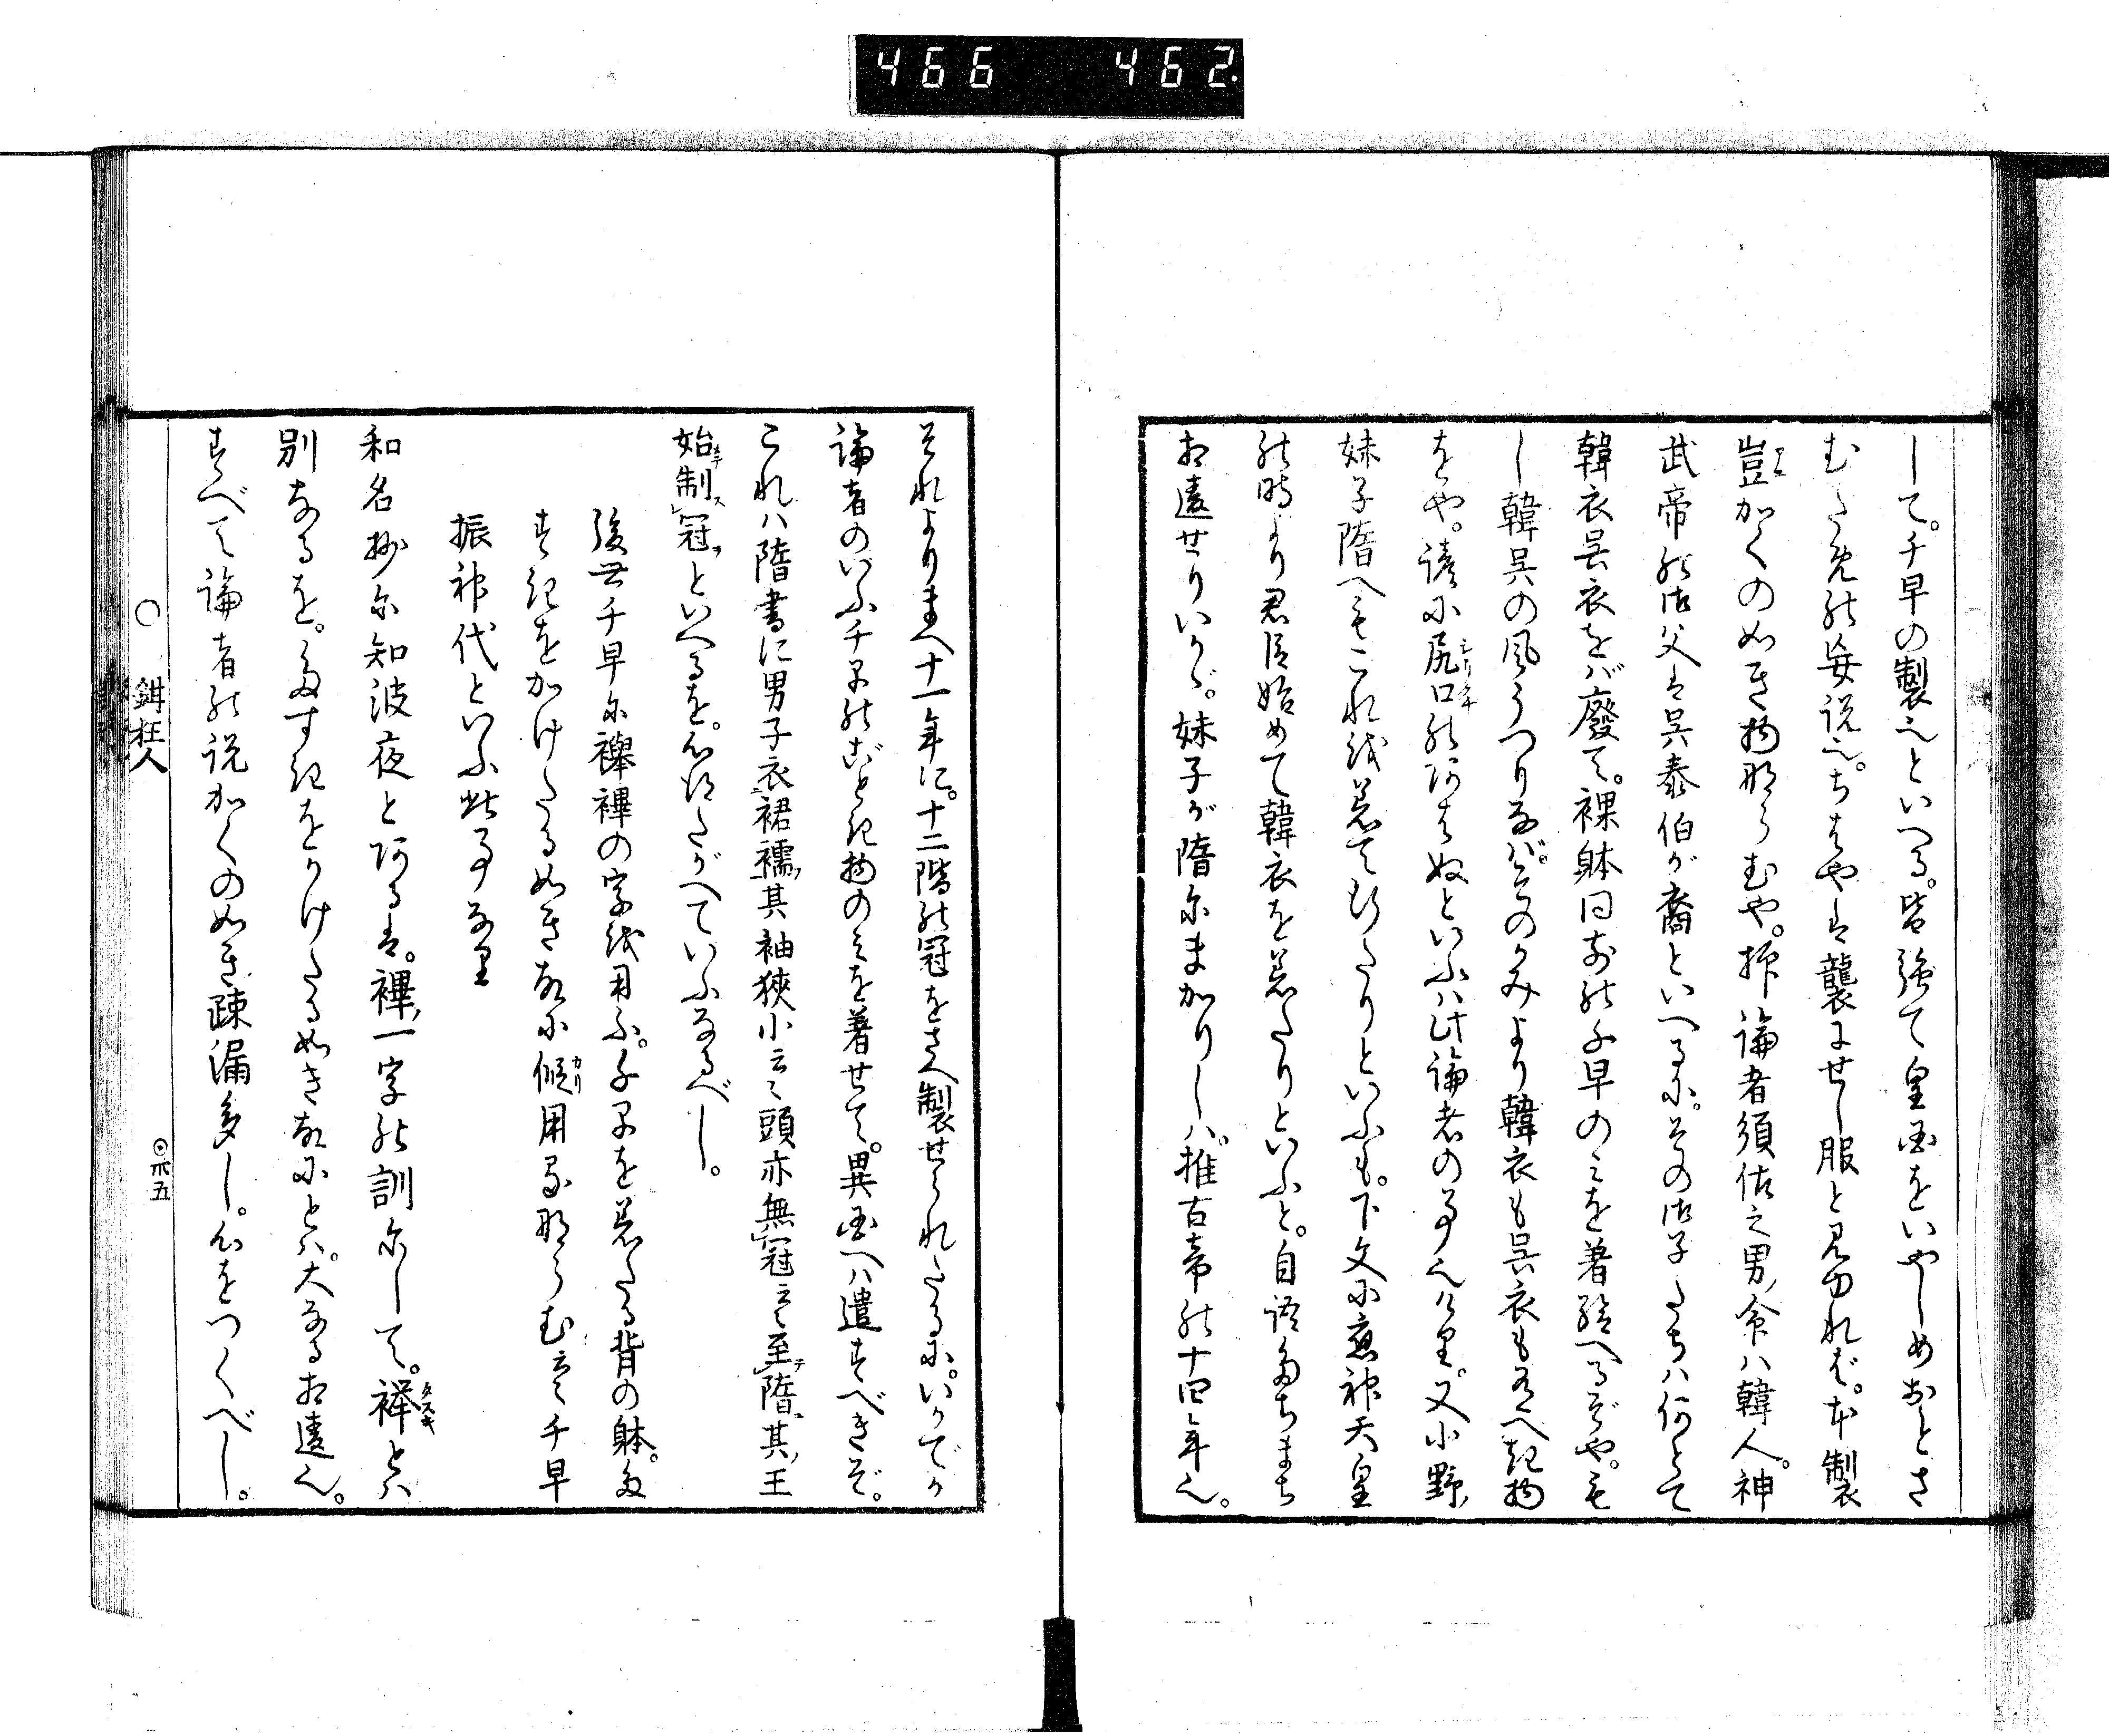 466 462
して。千早の製也といへる。皆強て皇国をいやしめおとさ
むための妄説也。ちはやは襲にせし服と見ゆれば。本製
豈かくのごとき物ならむや。抑論者須佐之男ノ命ハ韓人。神
武帝の御父は呉泰伯が裔といへるに。その御子たちハ何とて
韓衣呉衣をバ廃て。裸躰同前の千早のミを著給へるぞや。も
し韓呉の風うつりなバ。そのかみより韓衣も呉衣も有べき物
をや。諺に尻口のあはぬといふハ此論者の事也けり。又小野ノ
妹子隋へもこれを着て行たりといふも。下文に応神天皇
の時より君臣始めて韓衣を着たりといふと。自語たちまち
相違せりいかゞ。妹子が隋にまかりしハ。推古帝の十四年也。
それよりまへ十一年に。十二階の冠をさへ製せられたるに。いかでか
論者のいふ千早のごとき物のミを著せて。異国へハ遣すべきぞ。
これハ隋書に男子衣裙襦其袖狭小云々頭亦無冠云々至隋其王
始制冠といへるを。心得たがへていふなるべし。
後世千早に襷襅の字を用ふ。千早を着たる背の躰。た
すきをかけたるごとき故に仮用る ならむ云々千早
振神代といふ此事なり
和名抄に知波夜とあるは。襅ノ一字の訓にして。襷とハ
別なるを。たすきをかけたるごとき故にとハ。大なる相違也。
すべて論者の説かくのごとき疎漏多し。心をつくべし。
○ 鉗狂人
◎卅五